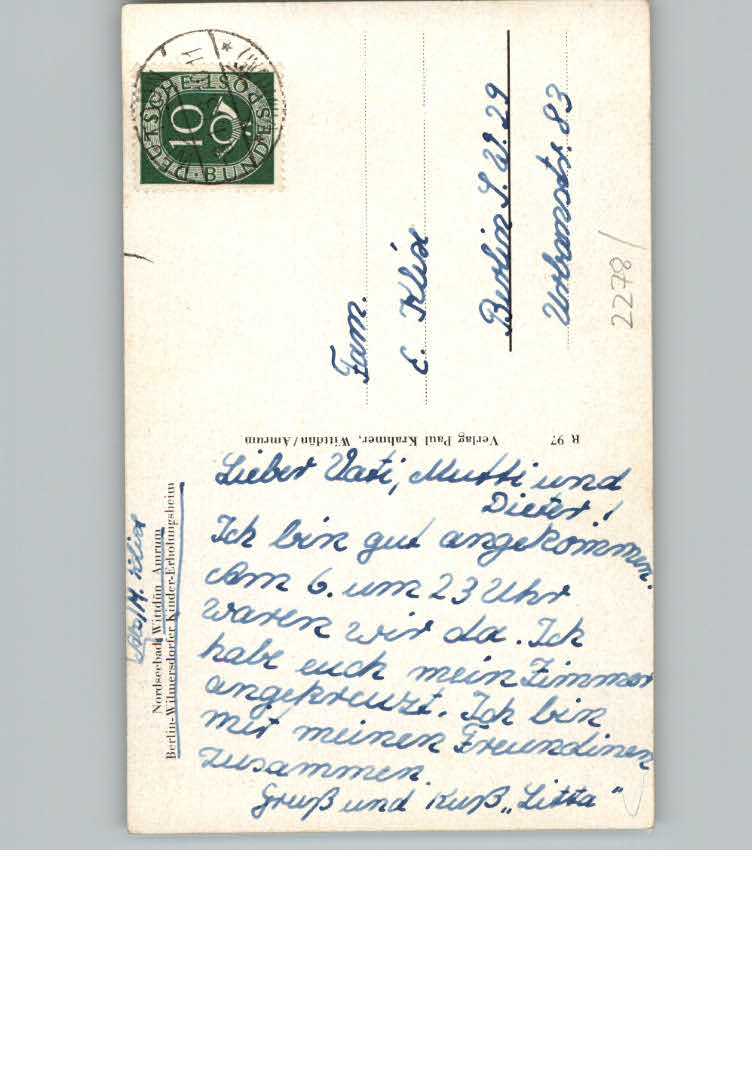 Nordseebad Wittdün Amrum
Berlin-Wilmersdorfer Kinder-Erholungsheim
Abs. M. Klix
Lieber Vati, Mutti und
Dieter!
Ich bin gut angekommen.
Am 6. um 23 Uhr
waren wir da. Ich
habe euch mein Zimmer
angekreuzt. Ich bin
mit meinen Freundinen
zusammen.
Gruß und Kuß „Litta"
Verlag Paul Krahmer, Wittdün/Amrum
R 97
DEUTSCHE BUNDESPOST
10
Fam.
E. Klix
Berlin S.W. 29
Urbanstr. 83
2278/